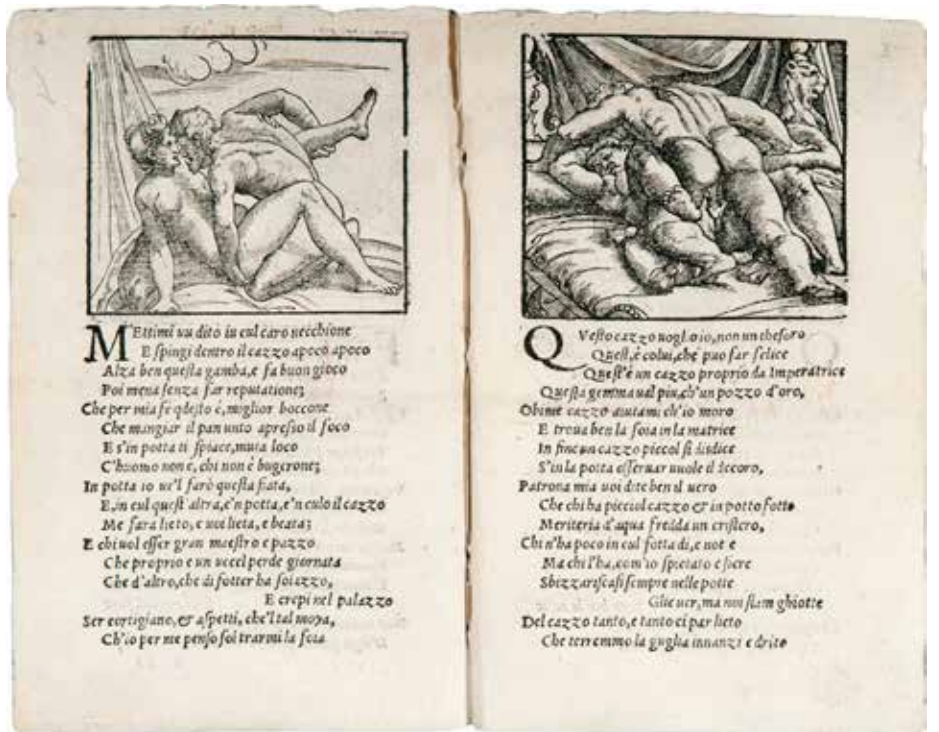 MEttimi un dito in cul caro vecchione
E spingi dentro il cazzo apoco apoco
Alza ben questa gamba, e fa buon gioco
Poi mena senza far reputatione;
Che per mia fe questo è, miglior boccone
Che mangiar il pan unto apresso il foco
E s'in potta ti spiace, muta loco
C'huomo non è, chi non è bugerone;
In potta io ve'l farò questa fiata,
E, in cul quest'altra, e'n potta, e'n culo il cazzo
Me fara lieto, e voi lieta, e beata;
E chi uol esser gran maestro e pazzo
Che proprio e un uccel perde giornata
Che d'altro, che di fotter ha solazzo,
E crepi nel palazzo
Ser cortigiano, & aspetti, che'l tal moya,
Ch'io per me penso sol trarmi la foia
QVesto cazzo uogl'oio, non un thesoro
Quest, è colui, che puo far felice
Quest'è un cazzo proprio da Imperatrice
Questa gemma ual piu, ch'un pozzo d'oro,
Ohime cazzo aiutami ch'io moro
E troua ben la foia in la matrice
In fine un cazzo piccol si disdice
S'in la potta osseruar uuole il decoro,
Patrona mia uoi dite ben il uero
Che chi ha picciol cazzo & in potto fotte
Meriteria d'aqua fredda un cristero,
Chi n'ha poco in cul fotta di, e not e
Ma chi l'ha, com'io spietato e fiere
Sbizzariscasi sempre nelle potte
Glie uer, ma noi siam ghiotte
Del cazzo tanto, e tanto ci par lieto
Che terremmo la guglia innanzi e drito